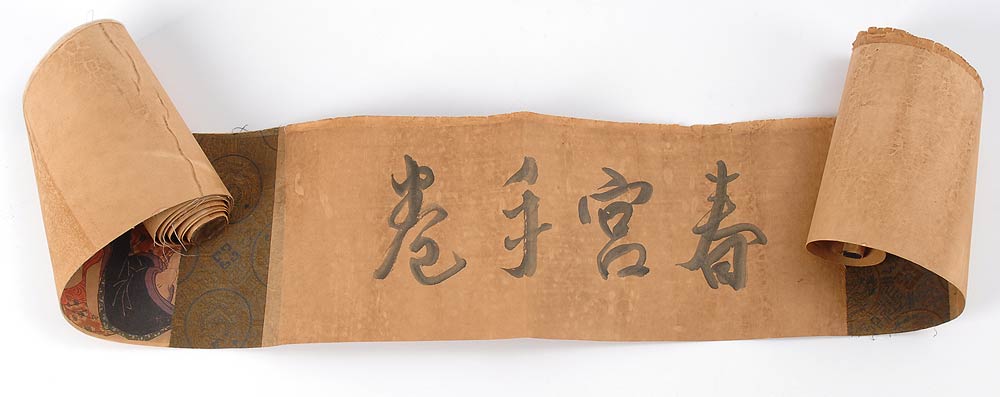 春宮手卷